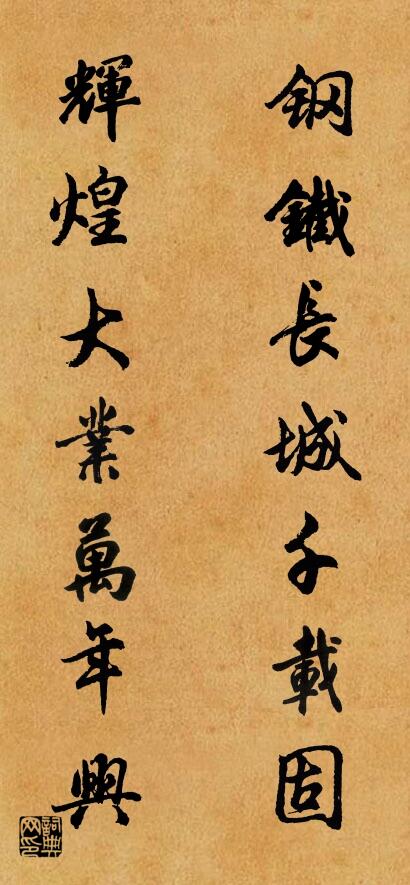 鋼鐵長城千載固
輝煌大業萬年興
詞典网印